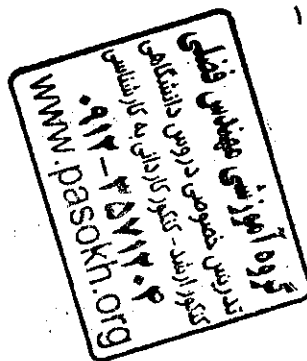 ۱
گروه آموزشی مهندس فضلی
تدریس خصوصی دروس دانشگاهی
کنکور ارشد - کنکور کاردانی به کارشناسی
۰۹۱۲-۳۵۷۱۲۰۴
www.pasokh.org